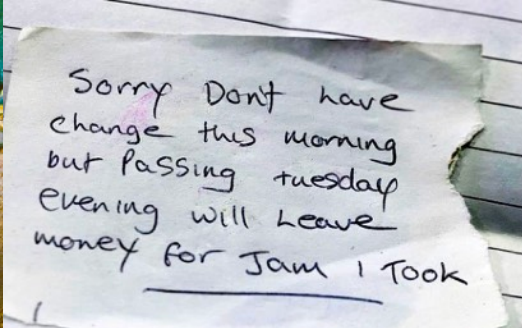 Sorry Don't have
change this morning
but Passing tuesday
evening will Leave
money for Jam I Took